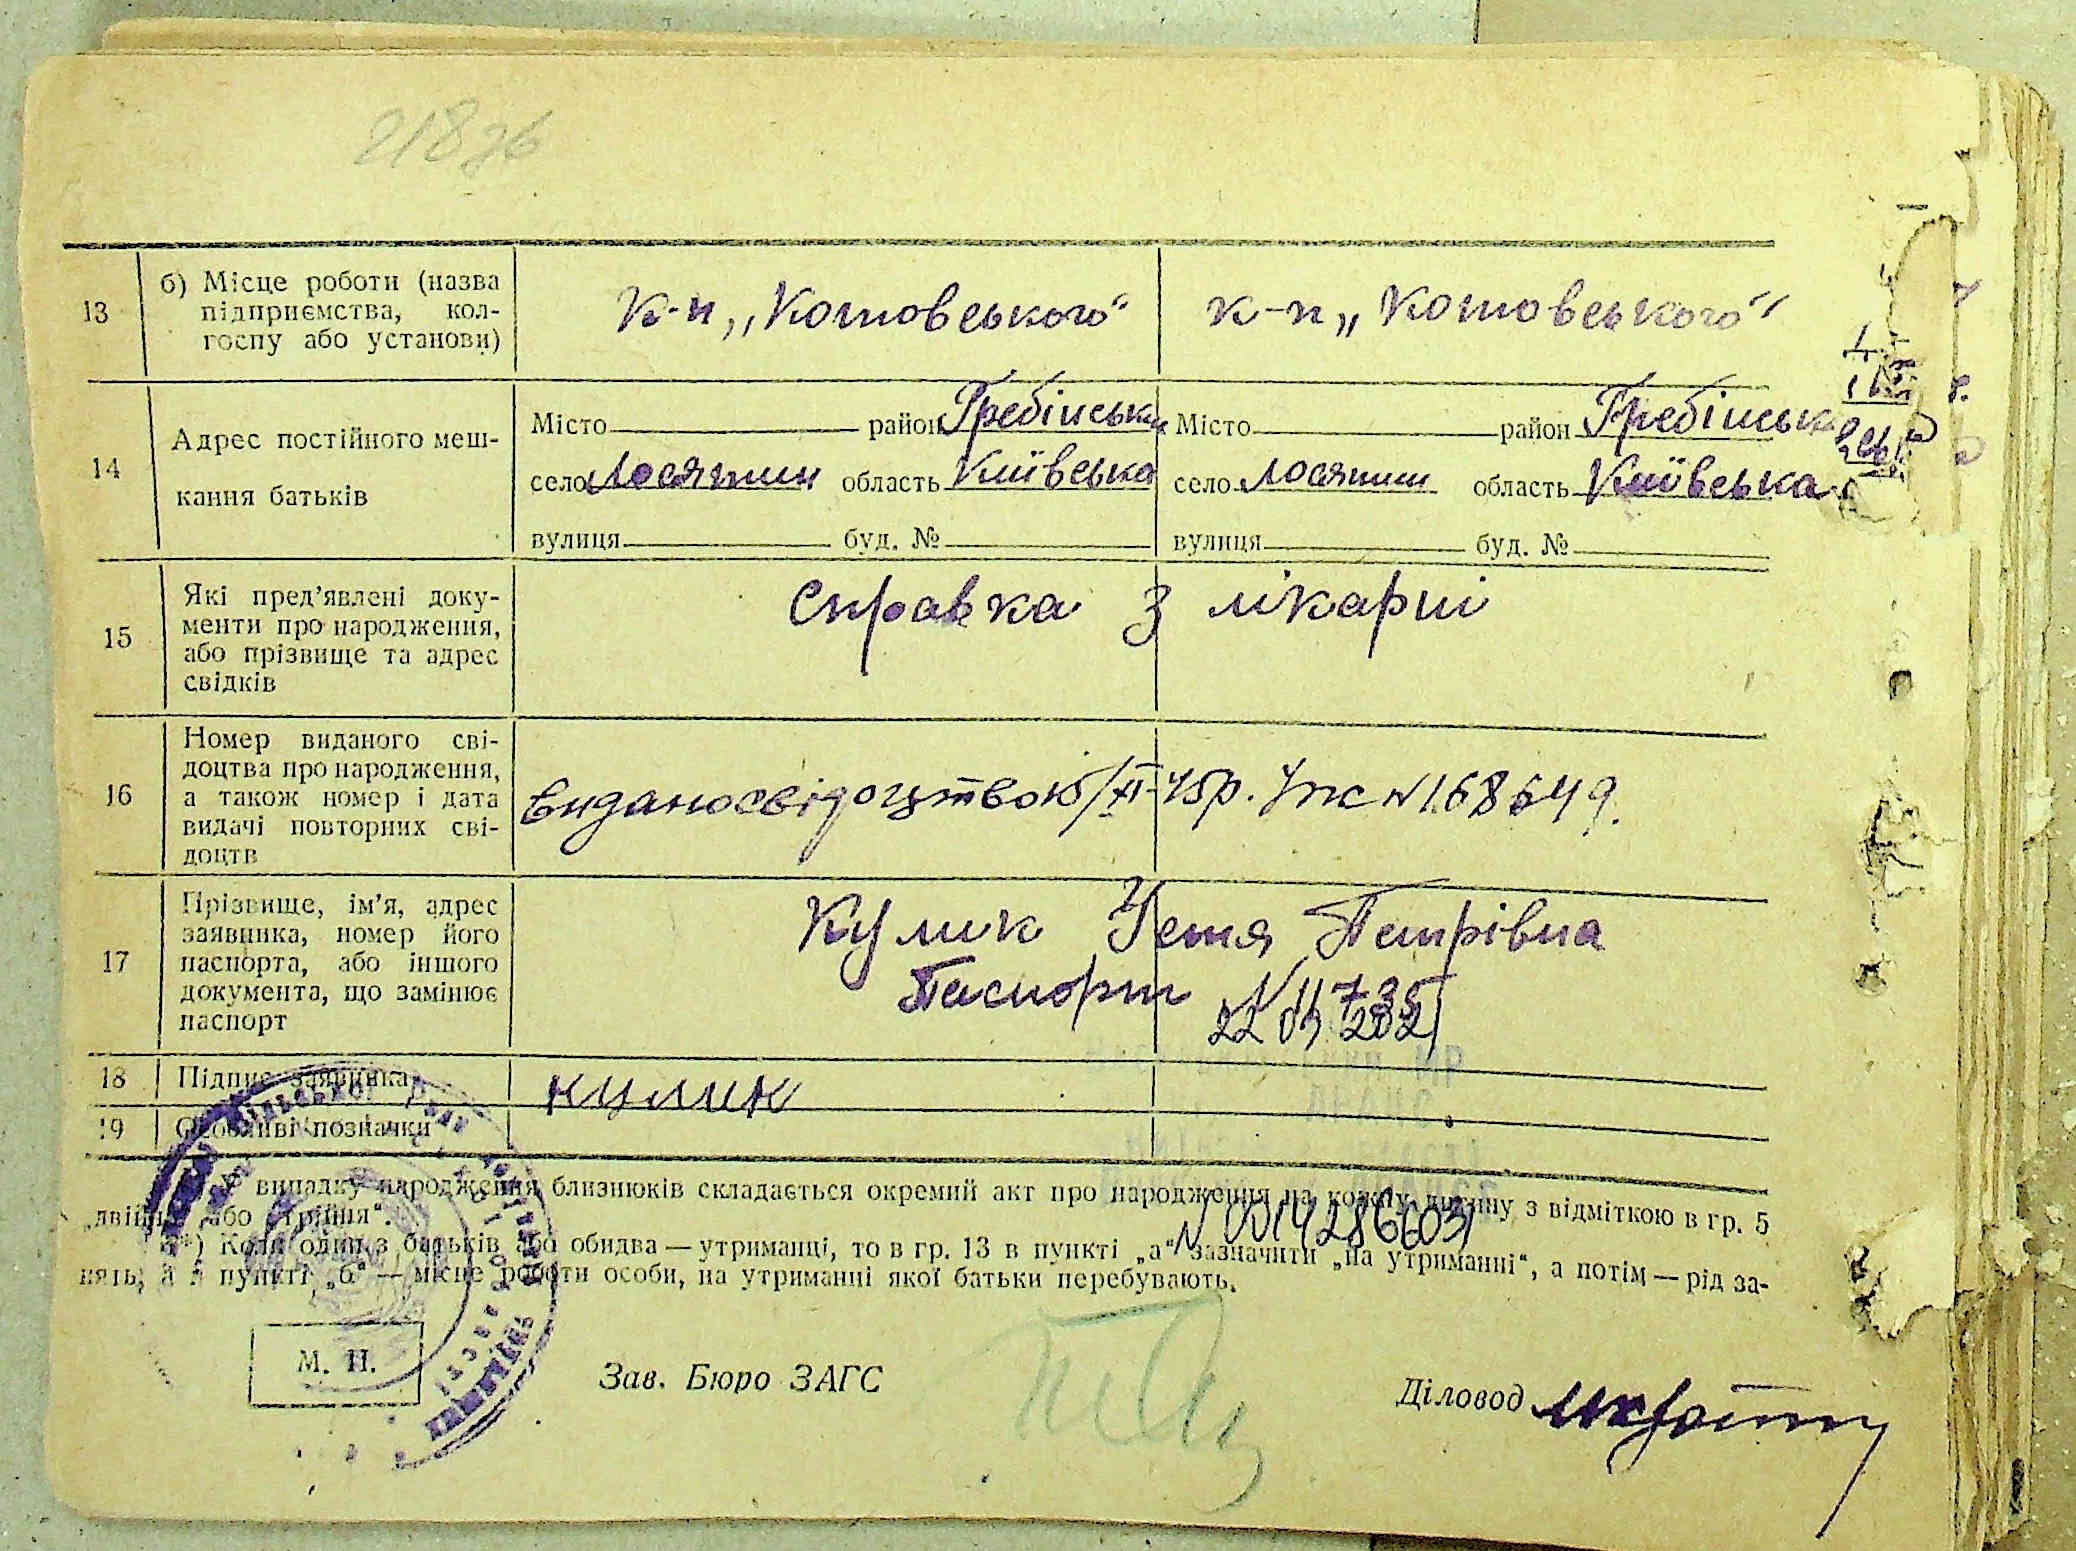 218зв
13
б) Місце роботи (назва
підприємства, кол-
госпу або установи)
к-п „Котовського“ к-п „Котовського“
14
Адрес постійного меш-
кання батьків
Місто район Гребінськи Місто район Гребінськ
село Лосятин область Київська село Лосятин область Київська
вулиця буд. № вулиця буд. №
15
Які пред’явлені доку-
менти про народження,
або прізвище та адрес
свідків
Справка з лікарні
16
Номер виданого сві-
доцтва про народження,
а також номер і дата
видачі повторних сві-
доцтв
видано свідоцтво 15/XI-45р. N 168649.
17
Прізвище, ім’я, адрес
заявника, номер його
паспорта, або іншого
документа, що замінює
паспорт
Кулик Устя Петрівна
Паспорт
18 Підпис заявника кулик
19 Особливі позначки
У випадку народження близнюків складається окремий акт про народження на кожну дитину з відміткою в гр. 5
„двійня“ або „трійня“.
**) Коли один з батьків або обидва — утриманці, то в гр. 13 в пункті „а“ зазначити „на утриманні“, а потім — рід за-
нять, а в пункті „б“ — місце роботи особи, на утриманні якої батьки перебувають.
N 00142866031
М. П.
Зав. Бюро ЗАГС
Діловод